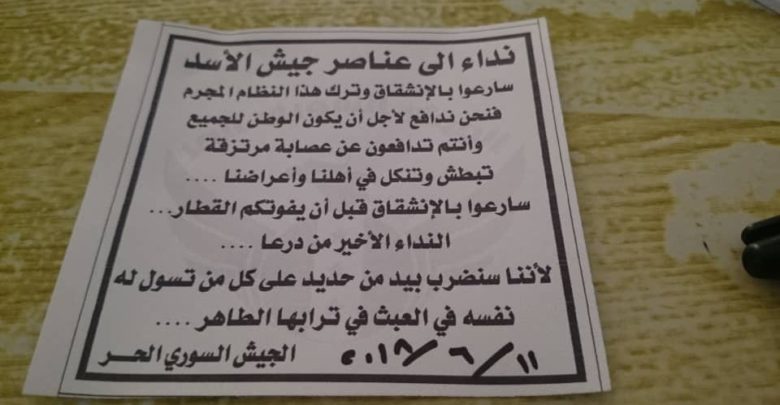 نداء الى عناصر جيش الأسد
سارعوا بالإنشقاق وترك هذا النظام المجرم
فنحن ندافع لأجل أن يكون الوطن للجميع
وأنتم تدافعون عن عصابة مرتزقة
تبطش وتنكل في أهلنا وأعراضنا ....
سارعوا بالإنشقاق قبل أن يفوتكم القطار...
النداء الأخير من درعا ....
لأننا سنضرب بيد من حديد على كل من تسول له
نفسه في العبث في ترابها الطاهر ....
١١/٦/٢٠١٨ الجيش السوري الحر